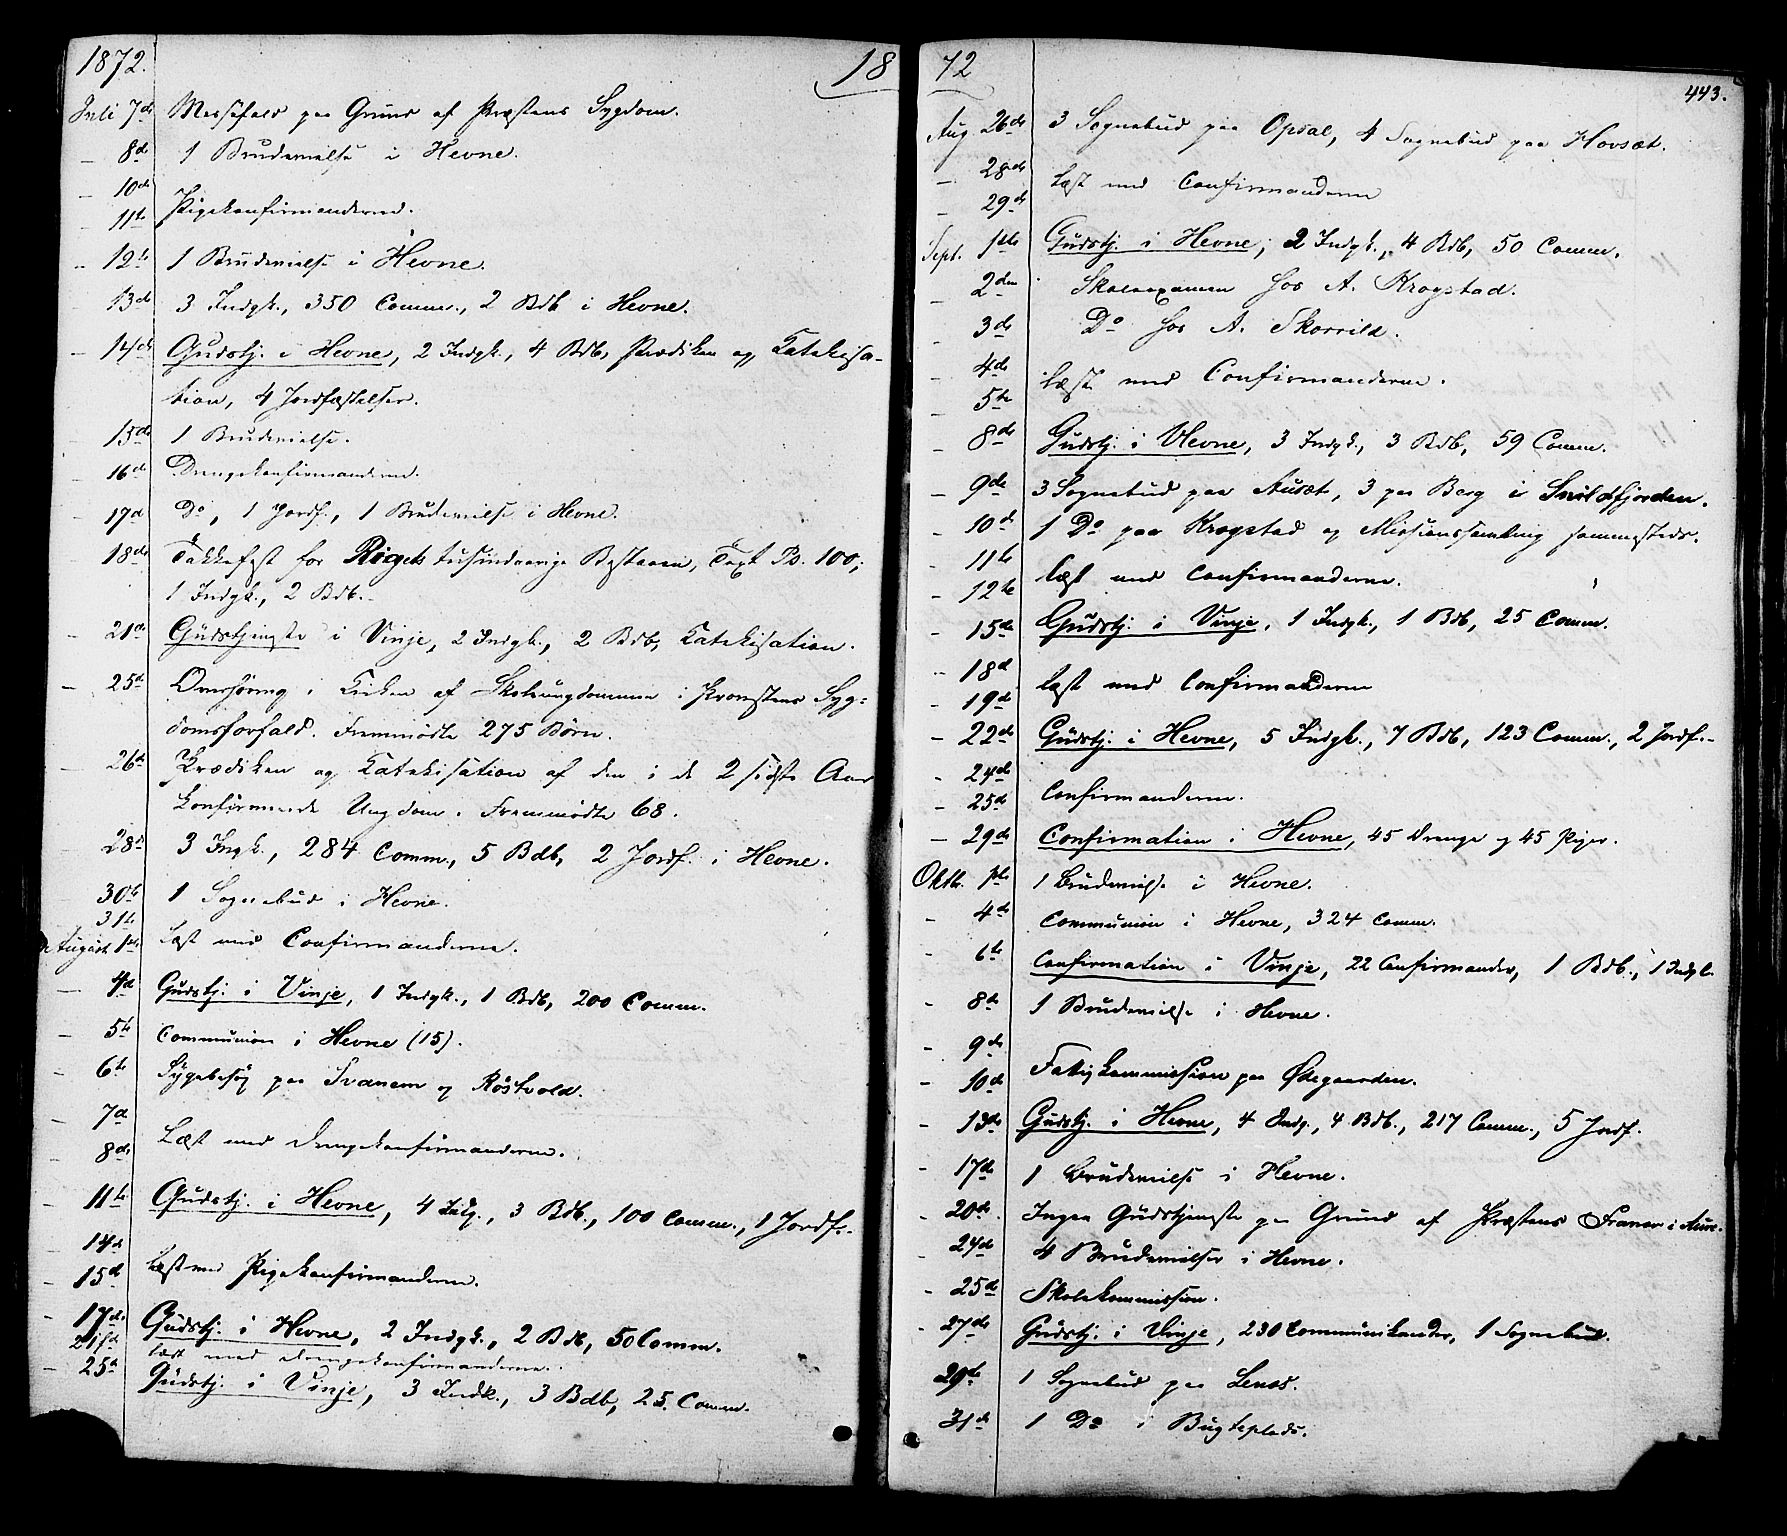 1872.
Juli 7de Messefald paa Grund af Præstens Sygdom.
— 8de 1 Brudevielse i Hevne.
— 10de
— 11te Pigekonfirmanderne.
— 12te 1 Brudevielse i Hevne.
— 13de 3 Indgk., 350 Comm., 2 Bdb i Hevne.
— 14de Gudstj. i Hevne, 2 Indgk., 4 Bdb, Prædiken og Katekisa-
tion, 4 Jordfæstelser.
— 15de 1 Brudevielse.
— 16de Drengekonfirmanderne.
— 17de Do, 1 Jordf., 1 Brudevielse i Hevne.
— 18de Takkefest for Rigets tusindaarige Bestaaen, Text Ps. 100;
1 Indgk., 2 Bdb.
— 21de Gudstjeneste i Vinje, 2 Indgk., 2 Bdb, Katekisation.
— 25de Overhøring i Kirken af Skoleungdommen i Provstens Syg-
domsforfald. Fremmødte 275 Børn.
— 26de Prædiken og Katekisation af den i de 2 sidste Aar
konfirmerede Ungdom. Fremmødte 68.
28de 3 Ingk., 284 Comm., 5 Bdb, 2 Jordf. i Hevne.
30te 1 Sognebud i Hevne.
31te
August 1ste Læst med Confirmanderne.
— 4de Gudstj. i Vinje, 1 Indgk., 1 Bdb, 200 Comm.
— 5te Communion i Hevne (15).
— 6te Sygebesøg paa Svanem og Röstvold.
— 7de
— 8de Læst med Drengekonfirmanderne.
— 11te Gudstj. i Hevne, 4 Indg., 3 Bdb., 100 Comm., 1 Jordf.
— 14de
— 15de Læst med Pigekonfirmanderne.
— 17de Gudstj. i Hevne, 2 Indgk., 2 Bdb, 50 Comm.
21de læst med Drengekonfirmanderne.
— 25de Gudstj. i Vinje, 3 Indk., 3 Bdb, 25. Comm.
18 72
443.
Aug 26de 3 Sognebud paa Opsal, 4 Sognebud paa Hovsæt.
— 28de
— 29de Læst med Confirmanderne
Sept. 1ste Gudstj. i Hevne; 2 Indgk., 4 Bdb, 50 Comm.
— 2den Skoleexamen hos A. Krogstad.
— 3de Do hos A. Skorrild.
— 4de
— 5te Læst med Confirmanderne.
— 8de Gudstj. i Hevne, 3 Indgk., 3 Bdb, 59 Comm.
— 9de 3 Sognebud paa Ausæt, 3 paa Berg i Snildfjorden.
— 10de 1 Do paa Krogstad og Missionssamling sammesteds.
— 11te
— 12te Læst med Confirmanderne.
— 15de Gudstj. i Vinje, 1 Indgk., 1 Bdb, 25 Comm.
— 18de
— 19de Læst med Confirmanderne
— 22de Gudstj. i Hevne, 5 Indgk., 7 Bdb, 123 Comm., 2 Jordf.
— 24de
— 25de Confirmanderne.
— 29de Confirmation i Hevne, 45 Drenge og 45 Piger.
Oktb. 1ste 1 Brudevielse i Hevne.
— 4de Communion i Hevne, 324 Comm.
— 6te Confirmation i Vinje, 22 Confirmander, 1 Bdb., 1 Indgk.
— 8de 1 Brudevielse i Hevne.
— 9de
— 10de Fattigkommission paa Ødegaarden.
— 13de Gudstj. i Hevne, 4 Indg., 4 Bdb., 217 Comm., 5 Jordf.
— 17de 1 Brudevielse i Hevne.
— 20de Ingen Gudstjeneste paa Grund af Præstens Fravær i Aure.
— 24de 4 Brudevielser i Hevne.
— 25de Skolekommission.
— 27de Gudstj. i Vinje, 230 Kommunikander, 1 Sognebud.
— 29de 1 Sognebud paa Lenæs.
— 31te 1 Do i Bugteplads.